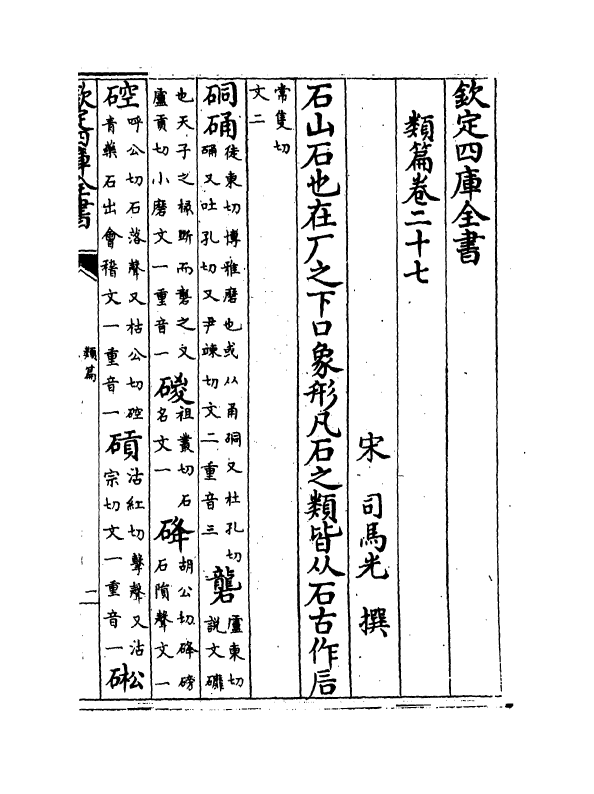 欽定四庫全書
類篇卷二十七
宋 司馬光 撰
石山石也在厂之下口象形凡石之類皆从石古作𠩄
常隻切
文二
硐硧徒東切博雅磨也或从甬硐又杜孔切
硧又吐孔切又尹竦切文二重音三
礱盧東切
說文礲
也天子之桷斲而礱之又
盧貢切小磨文一重音一
磫祖叢切石
名文一
硿胡公切硿磅
石隕聲文一
硿呼公切石落聲又枯公切硿
青藥石出會稽文一重音一
碽沽紅切擊聲又沽
宗切文一重音一
硹
欽定四庫全書
類篇
一